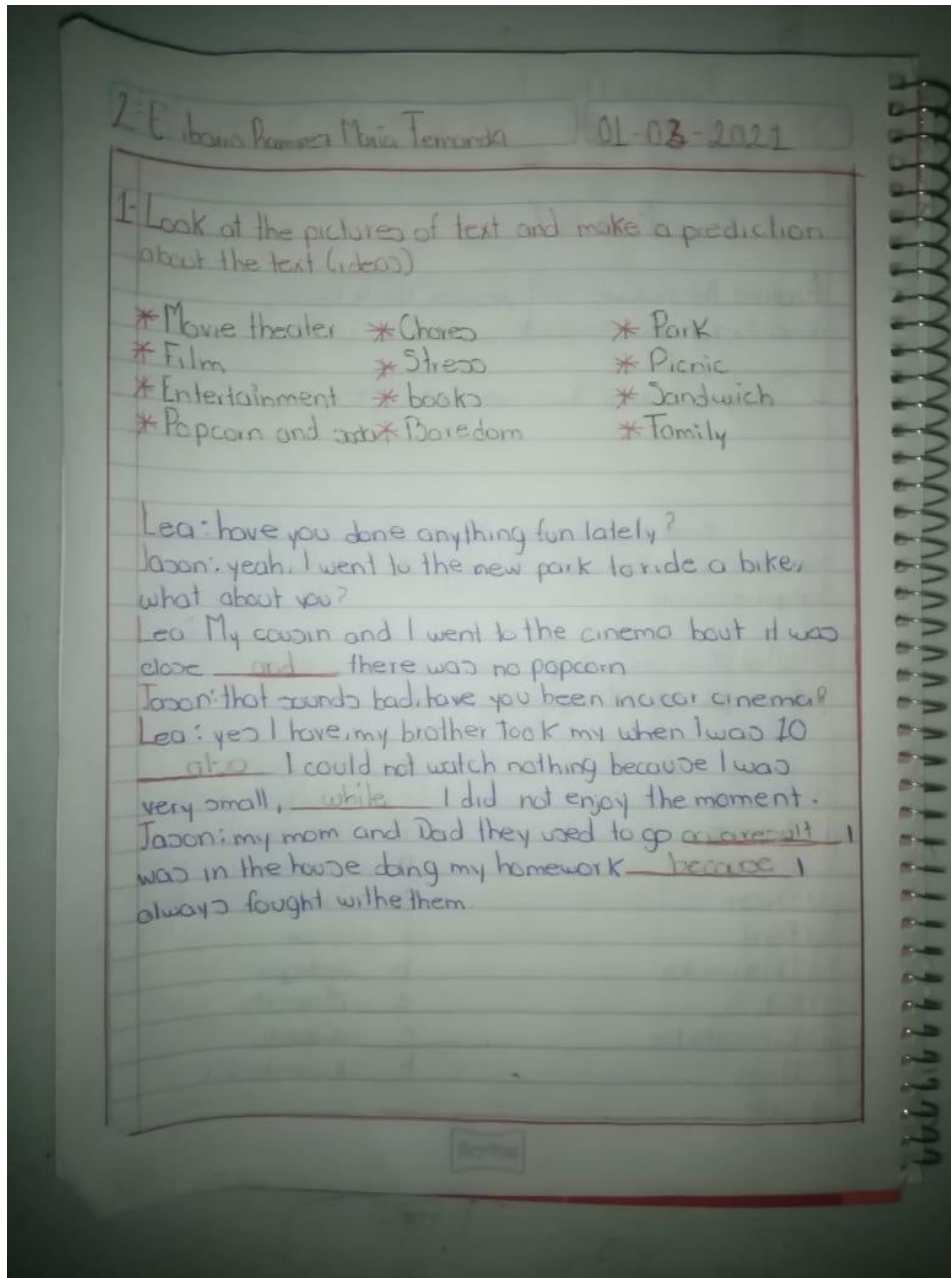 2-E ibarra Ramirez Maria Fernanda 01-03-2021
1- Look at the pictures of text and make a prediction
about the text (ideas)
* Movie theater * Chores * Park
* Film * Stress * Picnic
* Entertainment * books * Sandwich
* Popcorn and soda * Boredom * Family
Lea: have you done anything fun lately?
Jason: yeah. I went to the new park to ride a bike,
what about you?
Lea My cousin and I went to the cinema bout it was
close and there was no popcorn
Jason: that sounds bad, have you been in a car cinema?
Lea: yes I have, my brother took my when I was 10
also I could not watch nothing because I was
very small, while I did not enjoy the moment.
Jason: my mom and Dad they used to go as a result I
was in the house doing my homework because I
always fought withe them
Scribe